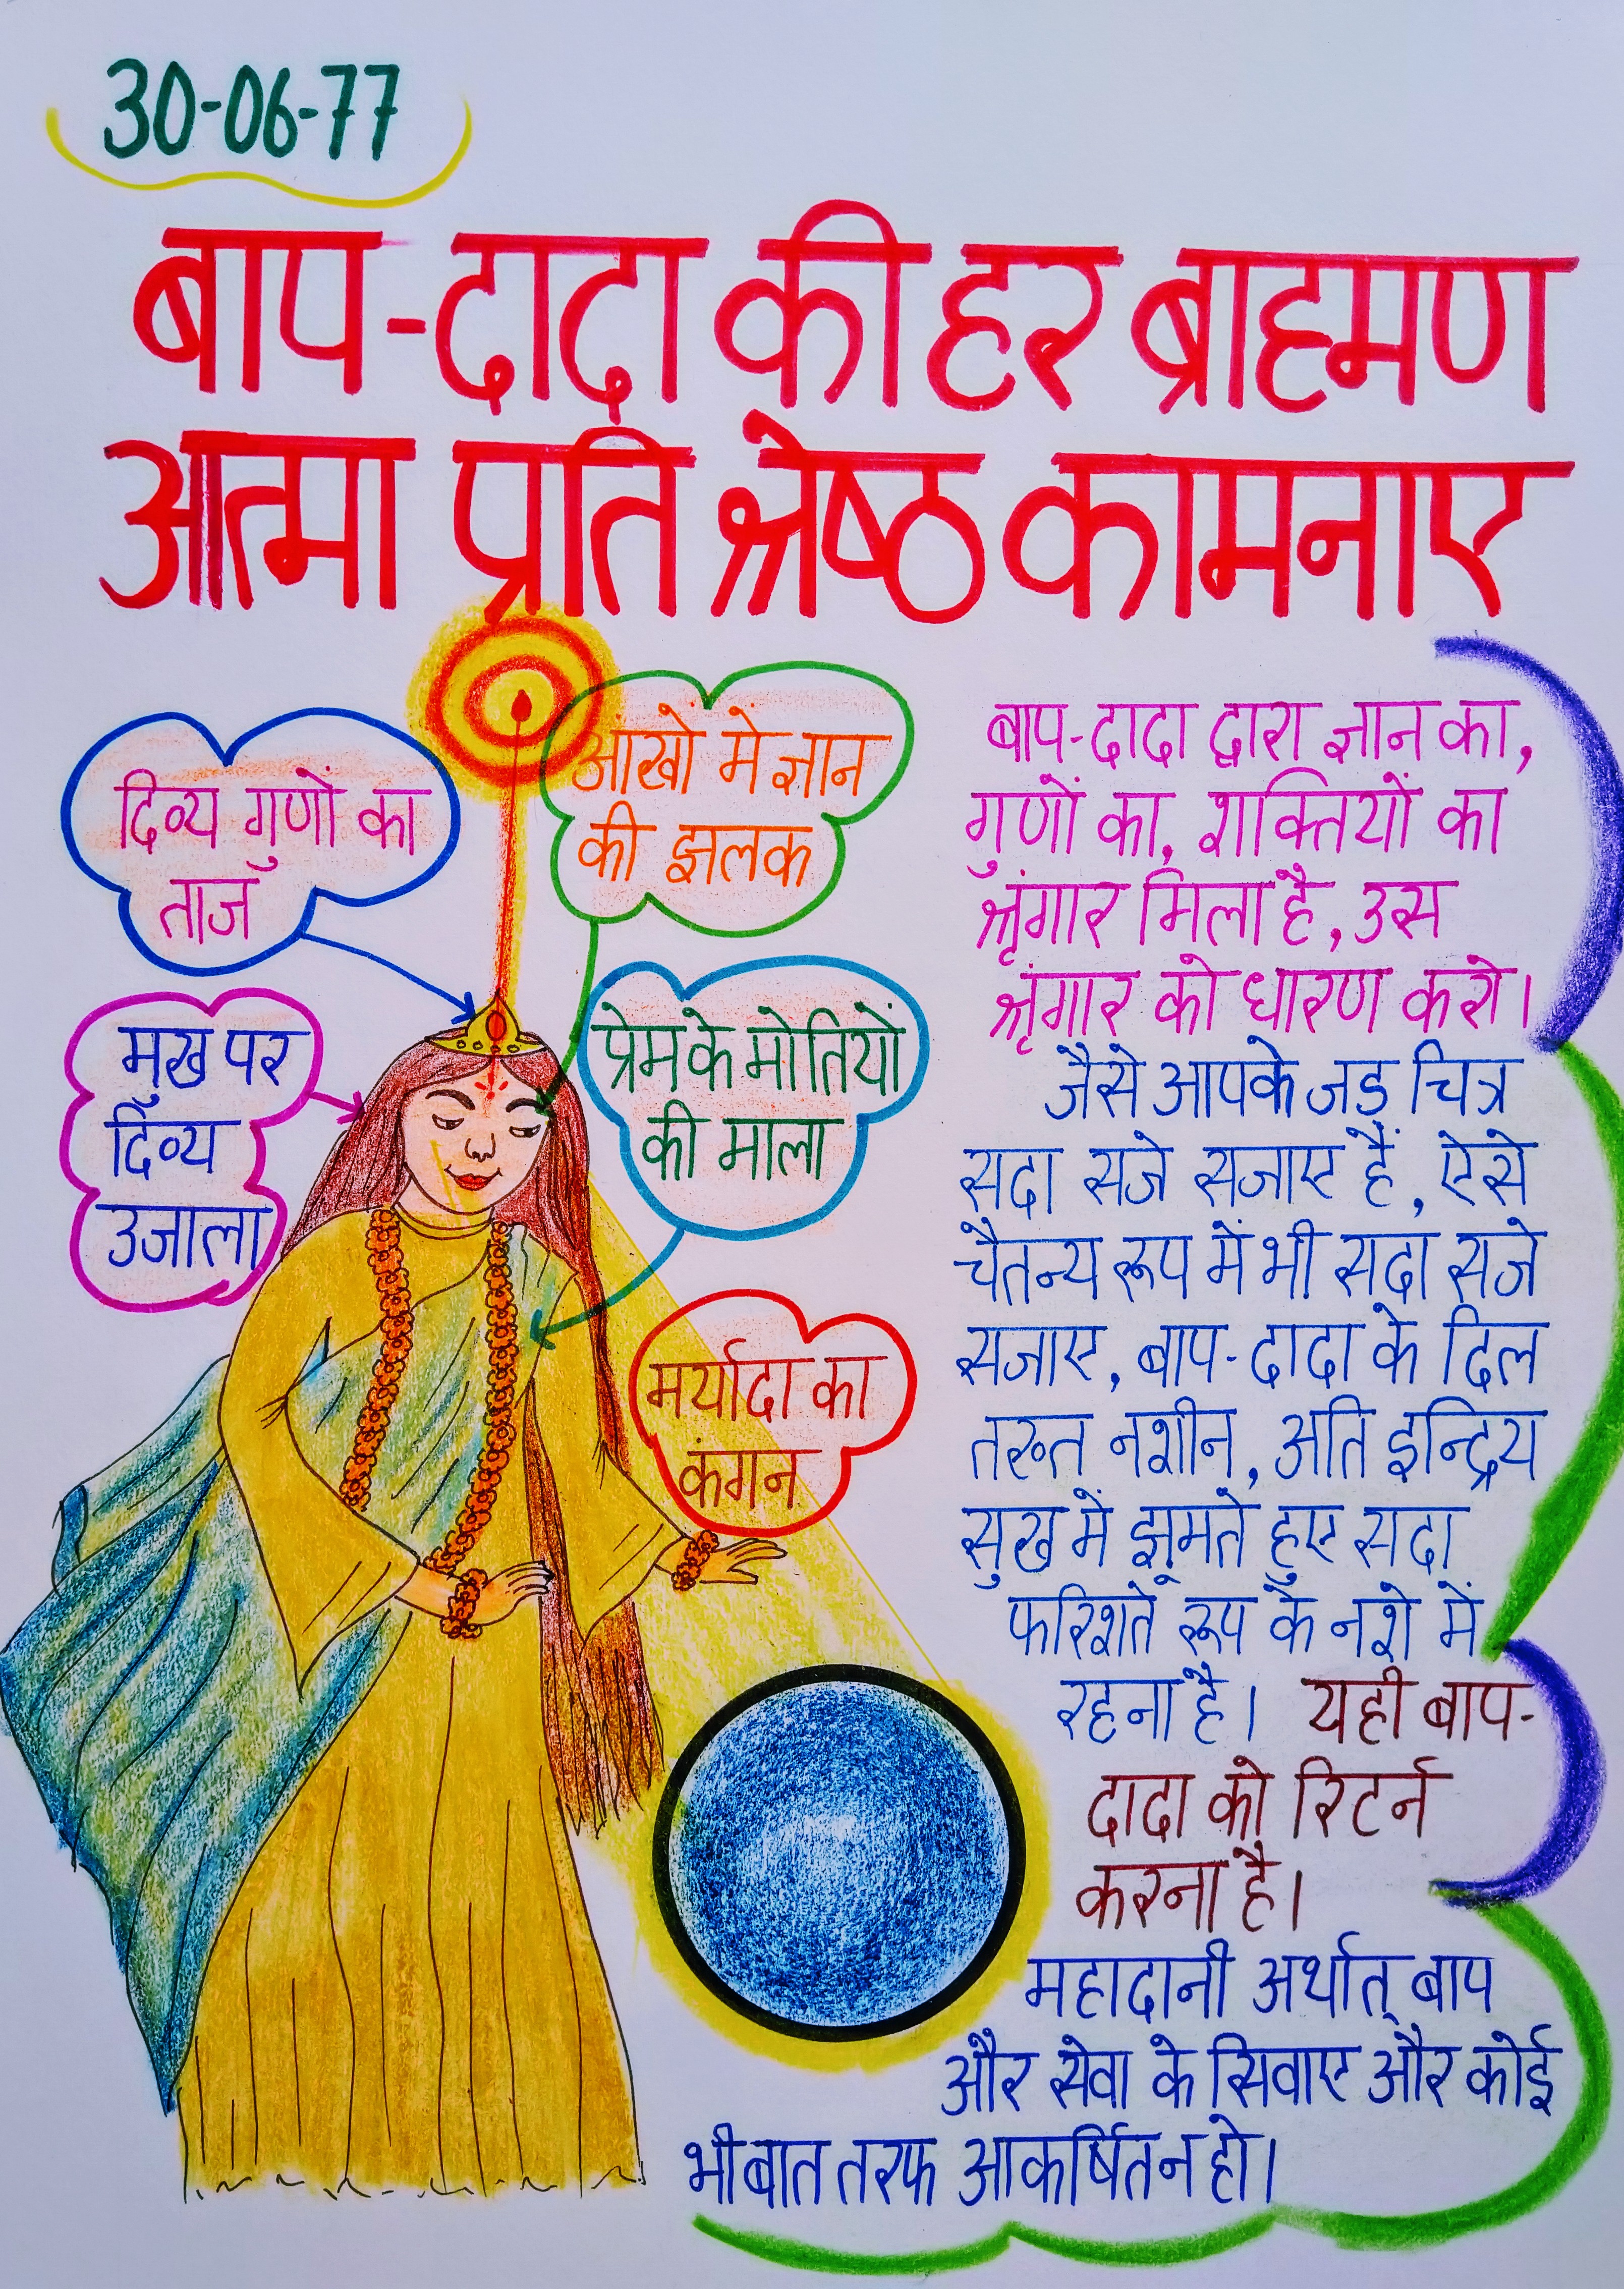 30-06-77
बाप-दादा की हर ब्राह्मण
आत्मा प्रति श्रेष्ठ कामनाए
दिव्य गुणों का
ताज
आंखों में ज्ञान
की झलक
मुख पर
दिव्य
उजाला
प्रेम के मोतियों
की माला
मर्यादा का
कंगन
बाप-दादा द्वारा ज्ञान का,
गुणों का, शक्तियों का
श्रृंगार मिला है, उस
श्रृंगार को धारण करो।
जैसे आपके जड़ चित्र
सदा सजे सजाए हैं, ऐसे
चैतन्य रूप में भी सदा सजे
सजाए, बाप-दादा के दिल
तख्त नशीन, अति इन्द्रिय
सुख में झूमते हुए सदा
फरिश्ते रूप के नशे में
रहना है। यही बाप-
दादा को रिटर्न
करना है।
महादानी अर्थात् बाप
और सेवा के सिवाए और कोई
भी बात तरफ आकर्षित न हो।